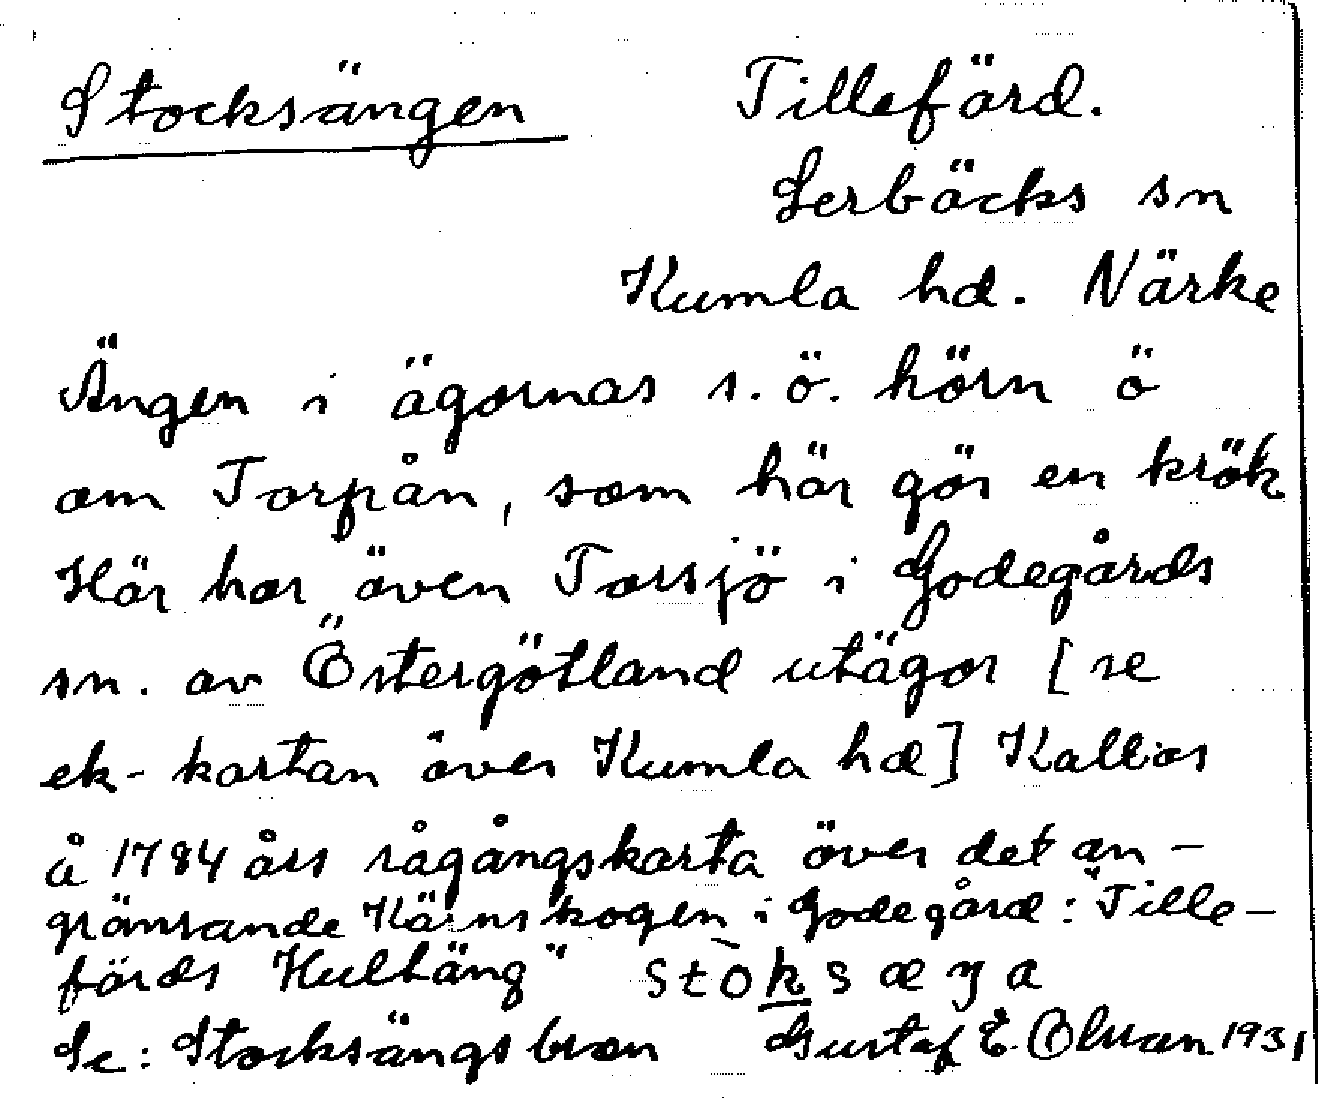 Stocksängen Tillefärd.
Lerbäcks sn
Kumla hd. Närke
Ängen i ägornas s.ö. hörn ö
om Torpån, som här gör en krök
Här har även Torsjö i Godegårds
sn. av Östergötland utägor [se
ek-kartan över Kumla hd] Kallas
å 1784 års rågångskarta över det an-
gränsande Kärnskogen i Godegård: "Tille-
färds Hultäng" stòksæŋa
Se: Stocksängsbron Gustaf E. Olman 1931